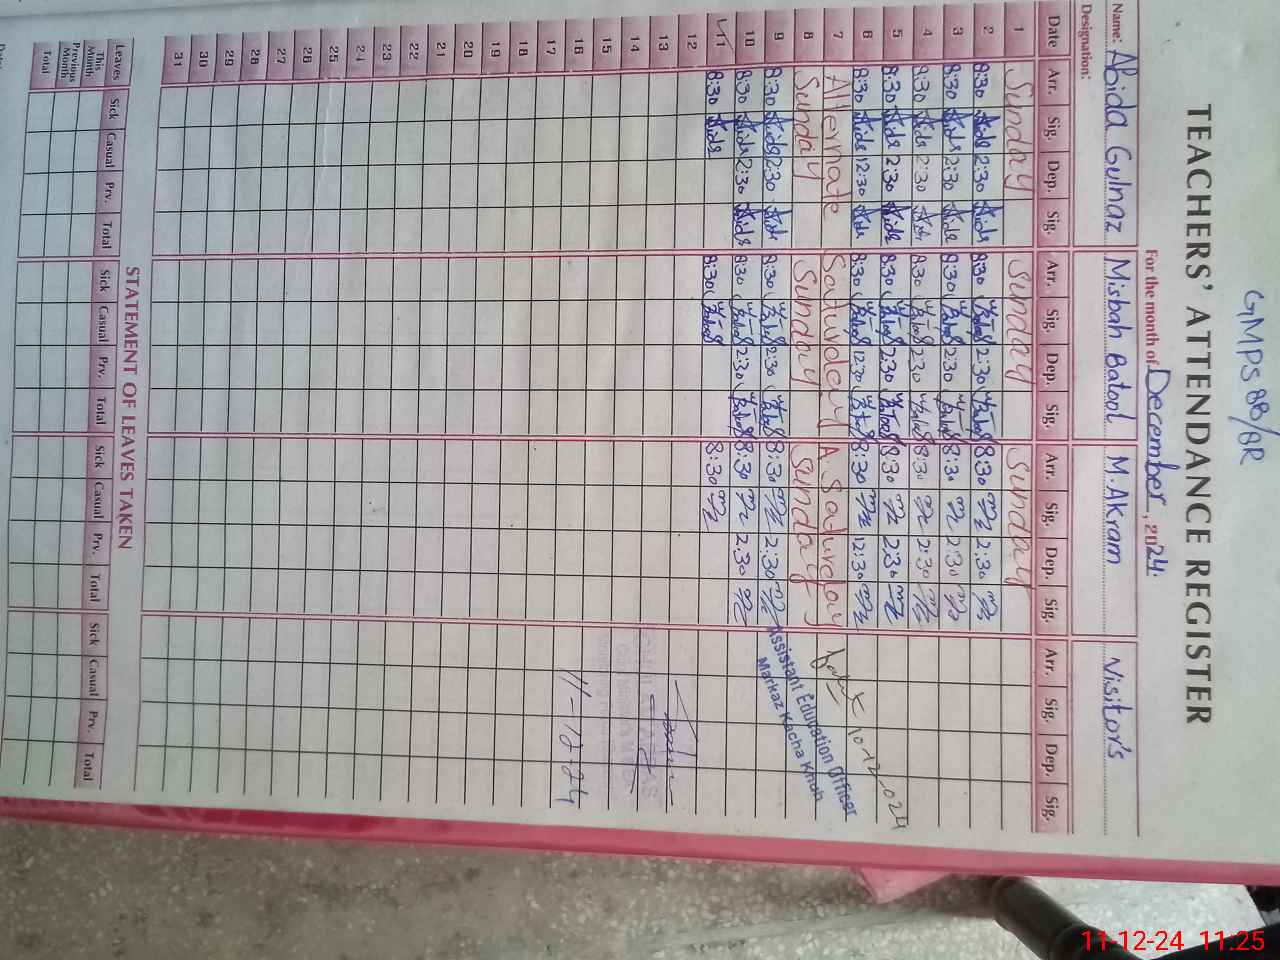 GMPS 88/8R
TEACHERS' ATTENDANCE REGISTER
For the month of December, 2024.
Name: Abida Gulnaz Misbah Batool M. Akram Visitors
Designation:
Date Arr. Sig. Dep. Sig. Arr. Sig. Dep. Sig. Arr. Sig. Dep. Sig. Arr. Sig. Dep. Sig.
1 Sunday Sunday Sunday
2 8:30 2:30 8:30 2:30 8:30 2:30
3 8:30 2:30 8:30 2:30 8:30 2:30
4 8:30 2:30 8:30 2:30 8:30 2:30
5 8:30 2:30 8:30 2:30 8:30 2:30
6 8:30 12:30 8:30 12:30 8:30 12:30
7 Alternate Saturday A. Saturday
8 Sunday Sunday Sunday
9 8:30 2:30 8:30 2:30 8:30 2:30
10 8:30 2:30 8:30 2:30 8:30 2:30
11 8:30 8:30 8:30
12
13
14
15
16
17
18
19
20
21
22
23
24
25
26
27
28
29
30
31
10-12-2024
Assistant Education Officer
Markaz Kacha Khuh
11-12-24
STATEMENT OF LEAVES TAKEN
Leaves Sick Casual Prv. Total Sick Casual Prv. Total Sick Casual Prv. Total Sick Casual Prv. Total
This Month
Previous Month
Total
11-12-24 11:25